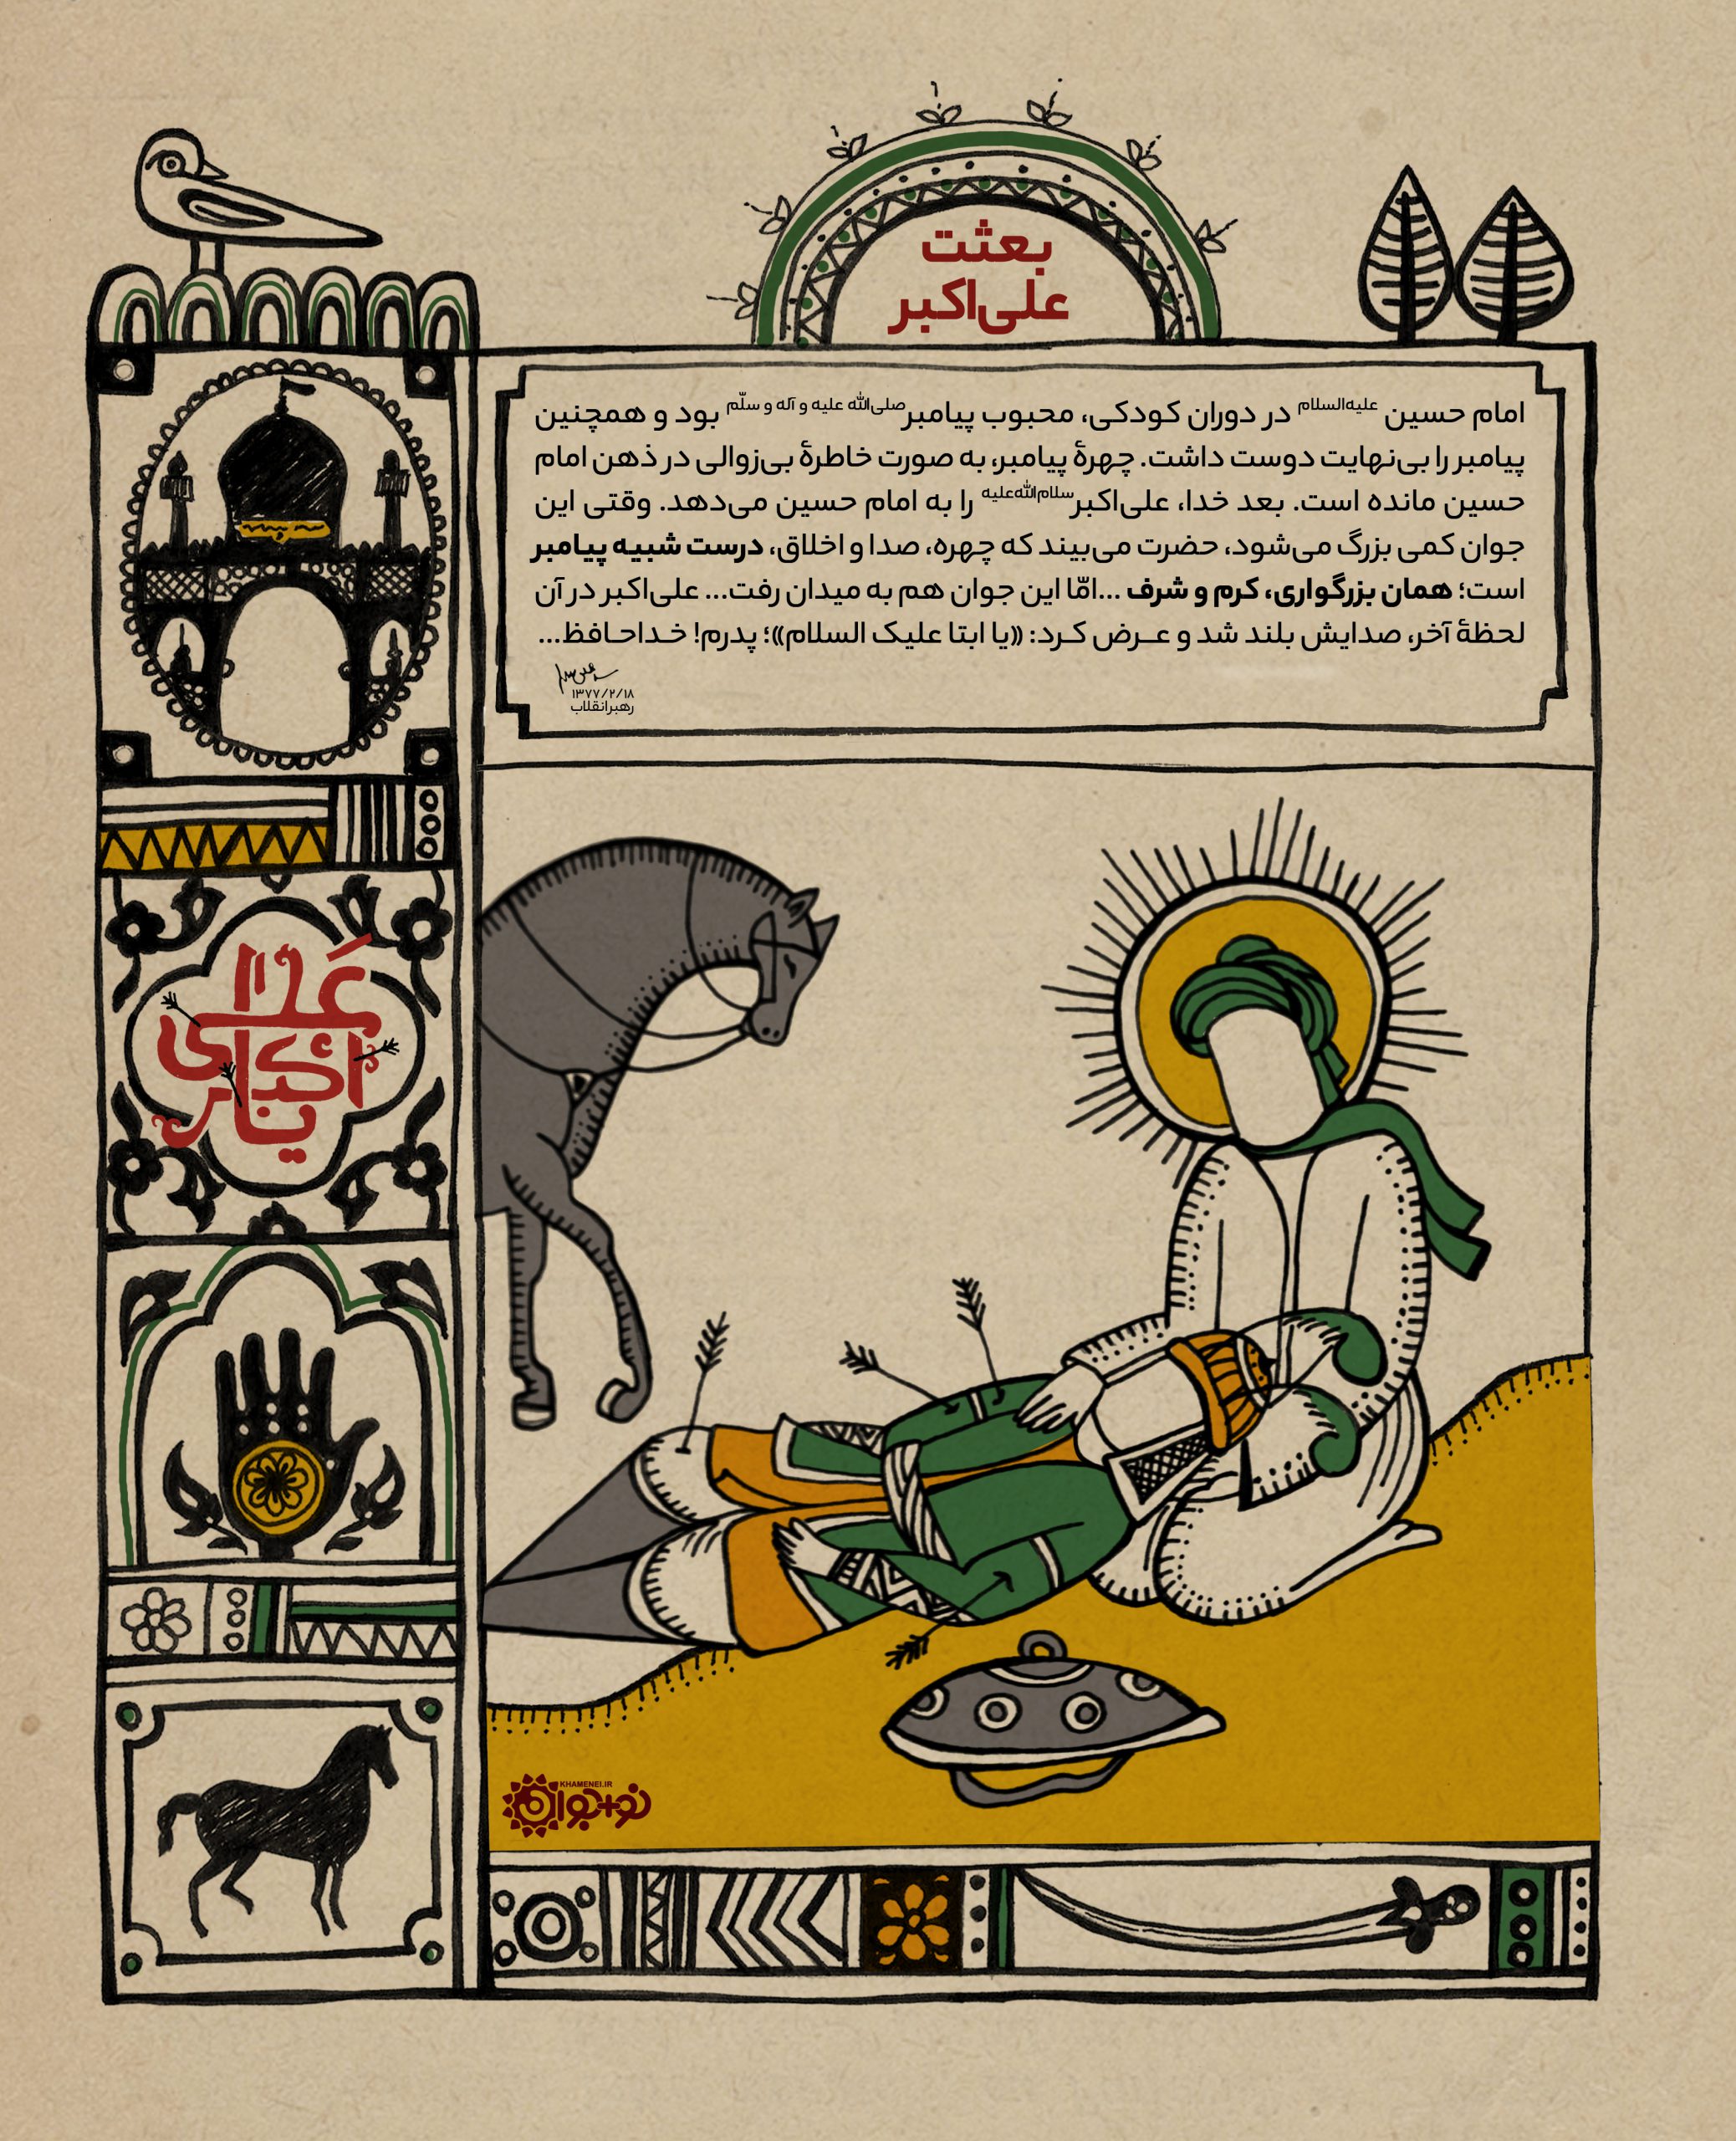 بعثت
علی‌اکبر
امام حسین علیه‌السلام در دوران کودکی، محبوب پیامبر صلی‌الله علیه و آله و سلّم بود و همچنین
پیامبر را بی‌نهایت دوست داشت. چهرهٔ پیامبر، به صورت خاطرهٔ بی‌زوالی در ذهن امام
حسین مانده است. بعد خدا، علی‌اکبر سلام‌الله‌علیه را به امام حسین می‌دهد. وقتی این
جوان کمی بزرگ می‌شود، حضرت می‌بیند که چهره، صدا و اخلاق، درست شبیه پیامبر
است؛ همان بزرگواری، کرم و شرف ...امّا این جوان هم به میدان رفت... علی‌اکبر در آن
لحظهٔ آخر، صدایش بلند شد و عـرض کـرد: «یا ابتا علیک السلام»؛ پدرم! خـداحـافظ...
۱۳۷۷/۲/۱۸
رهبر انقلاب
KHAMENEI.IR
نو+جوان